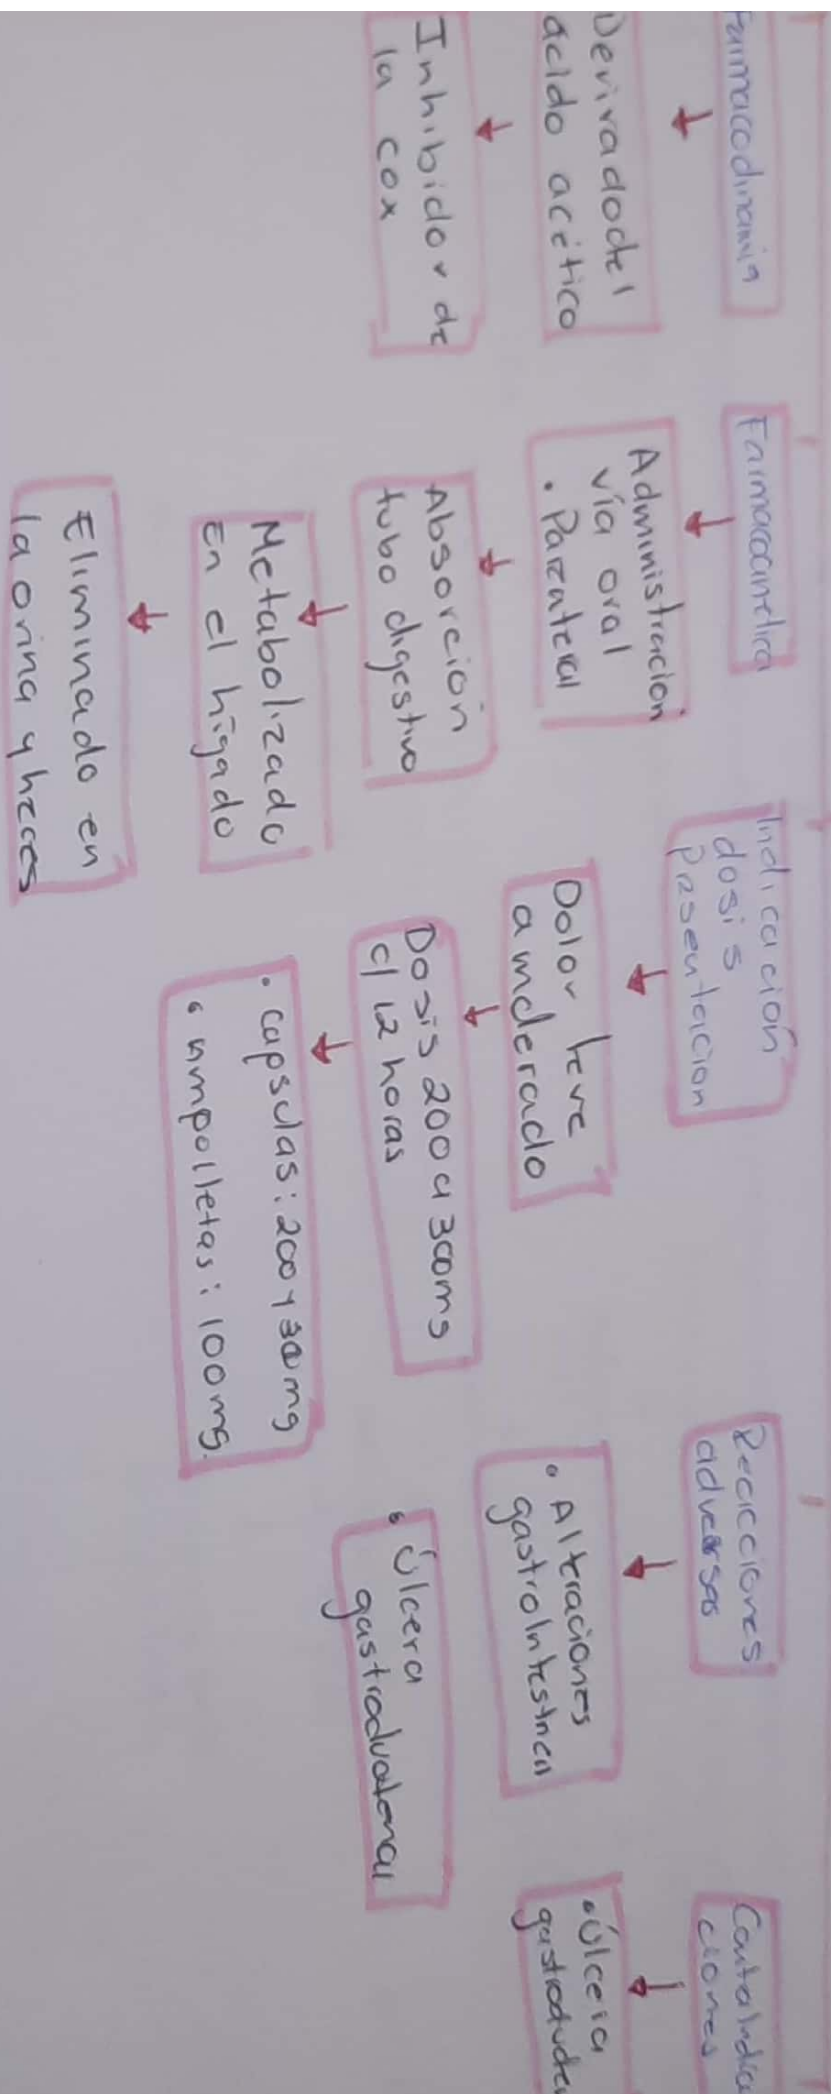 Farmacodinamia
Derivadodel
acido acético
Inhibidor de
la cox
Farmacocinetica
Administracion
vía oral
• Parenteral
Absorción
tubo digestivo
Metabolizado
En el hígado
Eliminado en
la orina y heces
Indicación
dosis
Presentacion
Dolor leve
a moderado
Dosis 200 a 300mg
c/ 12 horas
• capsulas: 200 y 300mg
• Ampolletas: 100mg.
Reacciones
adversas
• Alteraciones
gastrointestinal
• Úlcera
gastroduodenal
Contraindica
ciones
• Úlcera
gastroduoden